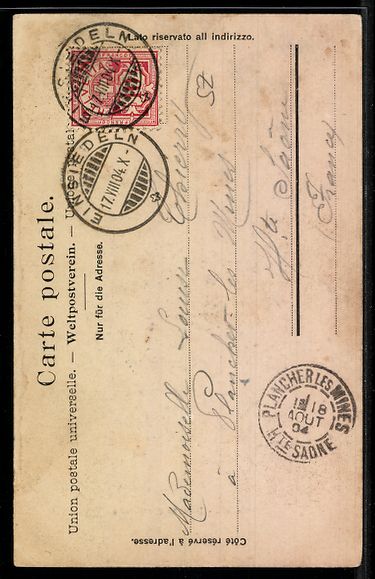 Carte postale.
Union postale universelle. — Weltpostverein. — Unione postale
Nur für die Adresse.
Lato riservato all indirizzo.
Côté réservé à l'adresse.
EINSIEDELN
17.VIII.04.X
EINSIEDELN
17.VIII.04
Mademoiselle Louise Thierry
à Plancher-les-Mines
Hte Saône
(France)
PLANCHER LES MINES
18
AOUT
04
HTE SAONE